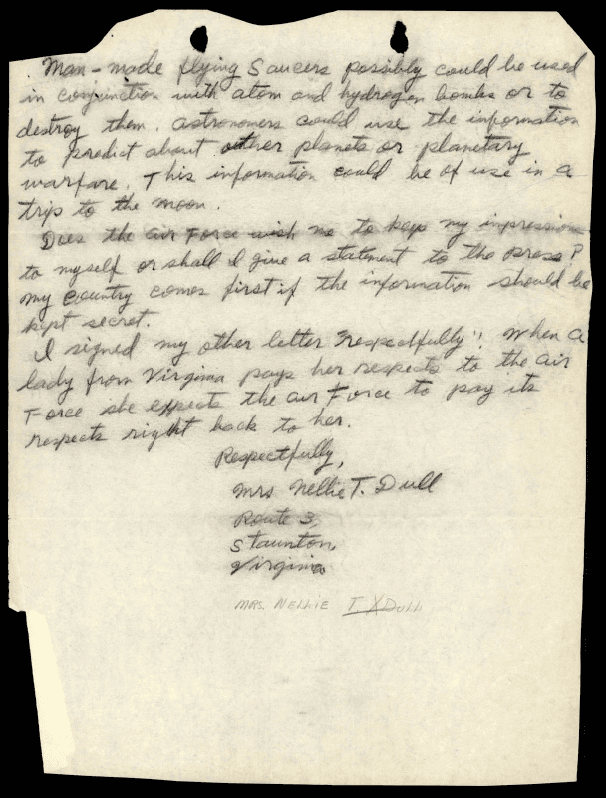 Man-made flying Saucers possibly could be used
in conjunction with atom and hydrogen bombs or to
destroy them. Astronomers could use the information
to predict about other planets or planetary
warfare. This information could be of use in a
trip to the moon.
Does the air Force wish me to keep my impressions
to myself or shall I give a statement to the press?
my country comes first if the information should be
kept secret.
I signed my other letter "respectfully". When a
lady from Virginia pays her respects to the air
Force she expects the air Force to pay its
respects right back to her.
Respectfully,
Mrs Nellie T. Dull
Route 3,
Staunton,
Virginia
MRS. NELLIE T. X DULL